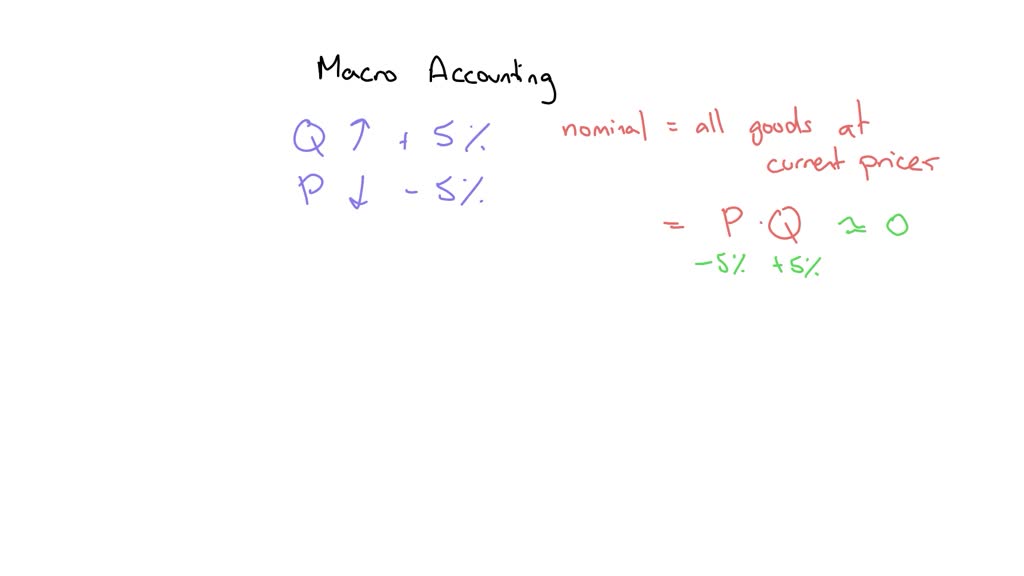 Macro Accounting
Q ↑ + 5%
P ↓ - 5%
nominal = all goods at
current prices
= P · Q ≃ 0
-5% +5%